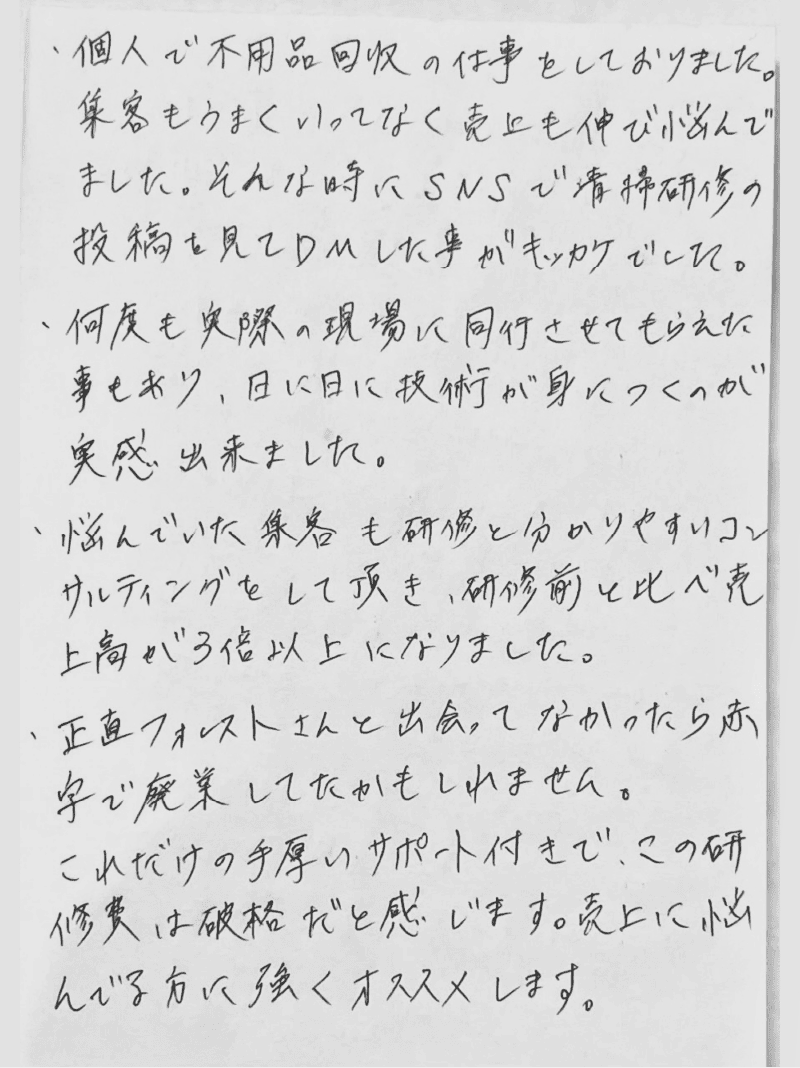 、個人で不用品回収の仕事をしておりました。
集客もうまくいってなく売上も伸び悩んで
ました。そんな時にSNSで清掃研修の
投稿を見てDMした事がキッカケでした。
、何度も実際の現場に同行させてもらえた
事もあり、日に日に技術が身につくのが
実感出来ました。
、悩んでいた集客も研修と分かりやすいコン
サルティングをして頂き、研修前と比べ売
上高が3倍以上になりました。
、正直フォレストさんと出会ってなかったら赤
字で廃業してたかもしれません。
これだけの手厚いサポート付きで、この研
修費は破格だと感じます。売上に悩
んでる方に強くオススメします。